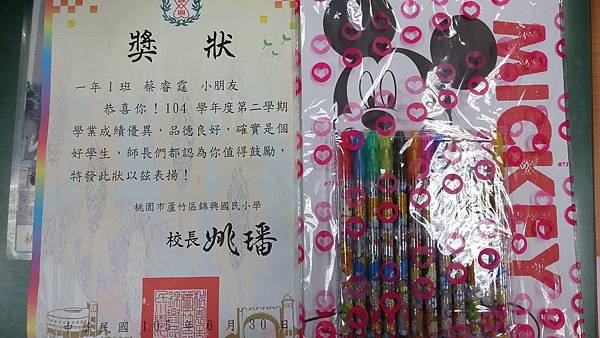 獎狀
一年1班 蔡睿霆 小朋友
恭喜你！104 學年度第二學期
學業成績優異，品德良好，確實是個
好學生，師長們都認為你值得鼓勵，
特發此狀以茲表揚！
桃園市蘆竹區錦興國民小學
校長 姚璠
中華民國 105 年 6 月 30 日
MICKEY